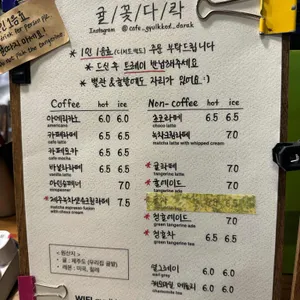 귤/꽃/다/락
Instagram @cafe_gyulkked_darak
* 1인 1음료 (디저트제외) 주문 부탁드립니다
* 드신 후 트레이 반납해주세요
* 별관 & 귤밭에도 자리가 있어요 :)
Coffee hot ice
아메리카노 6.0 6.0
americano
카페라떼 6.5 6.5
cafe latte
카페모카 6.5 6.5
cafe mocha
바닐라라떼 6.5 6.5
vanilla latte
아인슈페너 7.0
einspanner
* 제주말차샷에스프레소 7.5
matcha espresso fusion
with choco cream
Non-coffee hot ice
초코라떼 6.5 6.5
choco latte
녹차크림라떼 7.0
matcha latte with whipped cream
* 귤라떼 7.0
tangerine latte
* 귤에이드 7.0
tangerine ade
* 청귤에이드 7.0
green tangerine ade
* 청귤차 6.5 6.5
green tangerine tea
얼그레이 6.5 6.0
earl grey
캐모마일 6.5 6.0
< 원산지 >
- 귤 : 제주도 (우리집 귤밭)
- 레몬 : 미국, 칠레
WIFI